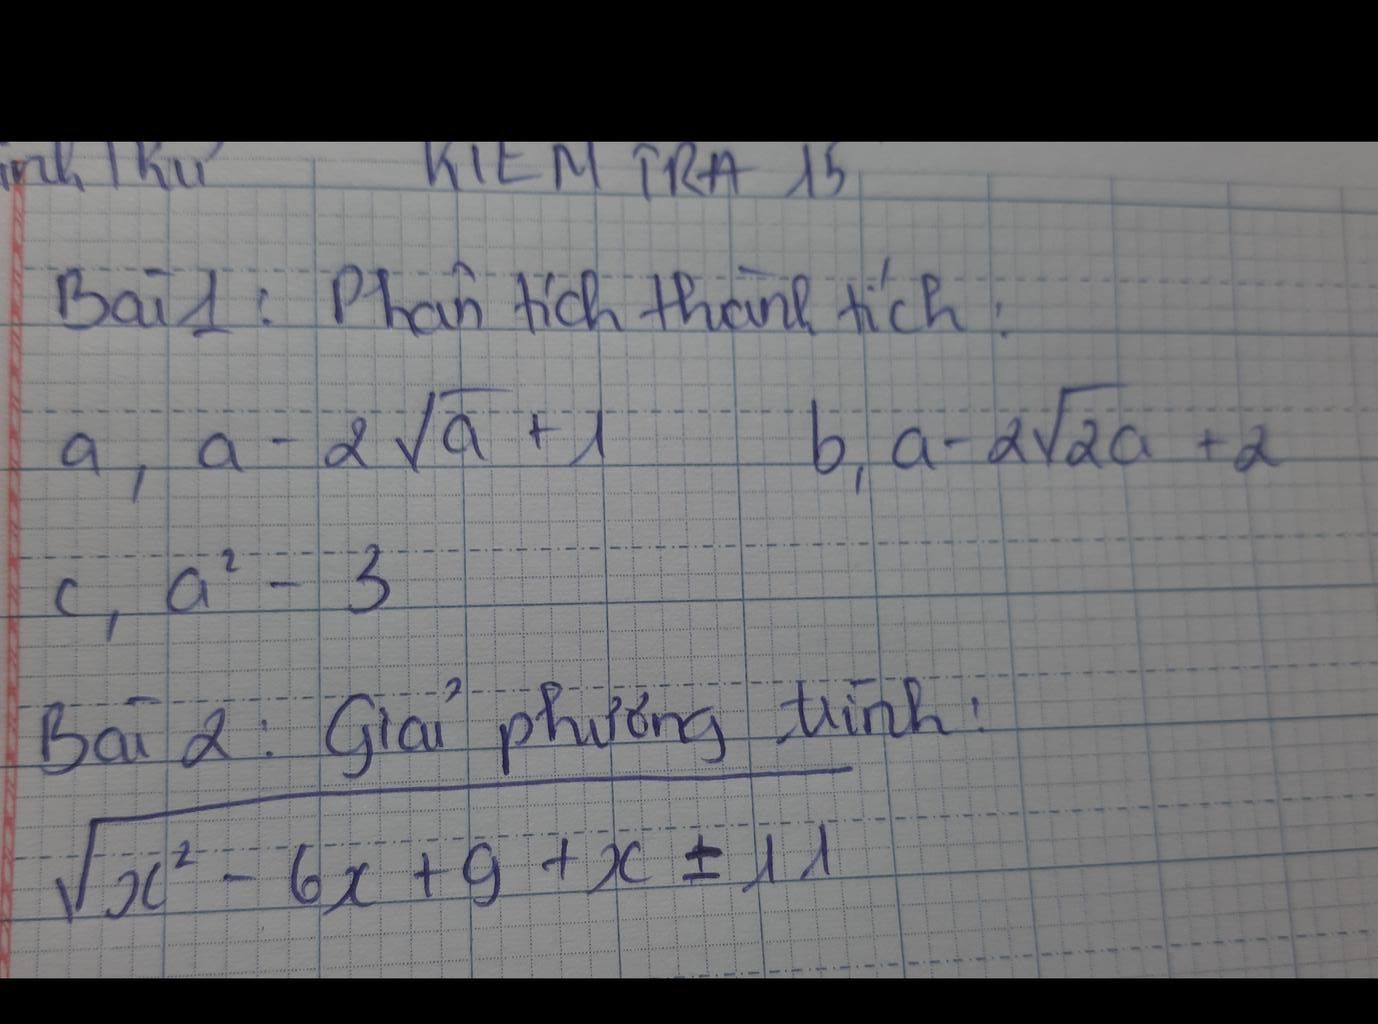 KIỂM TRA 15
Bài 1: Phân tích thành tích:
a, a - 2√a + 1 b, a - 2√2a + 2
c, a² - 3
Bài 2: Giải phương trình:
√x² - 6x + 9 + x ± 11